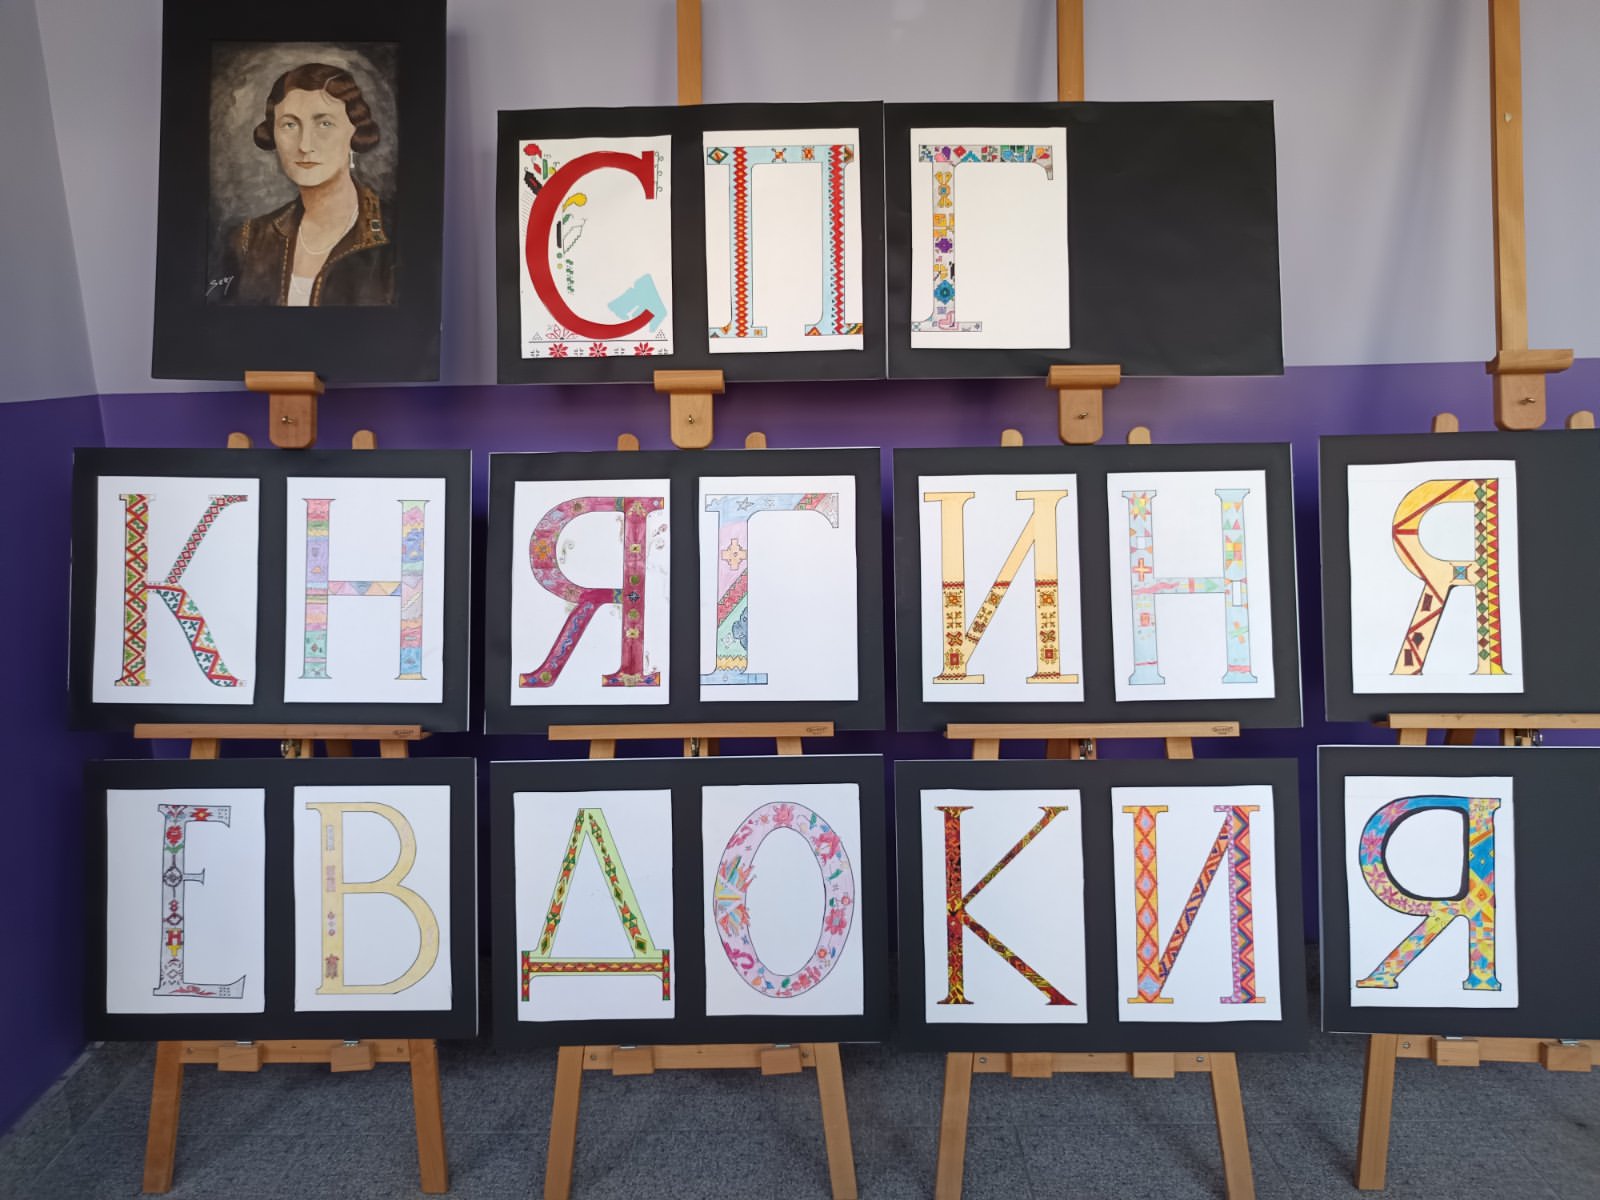 СПГ
КНЯГИНЯ
ЕВДОКИЯ